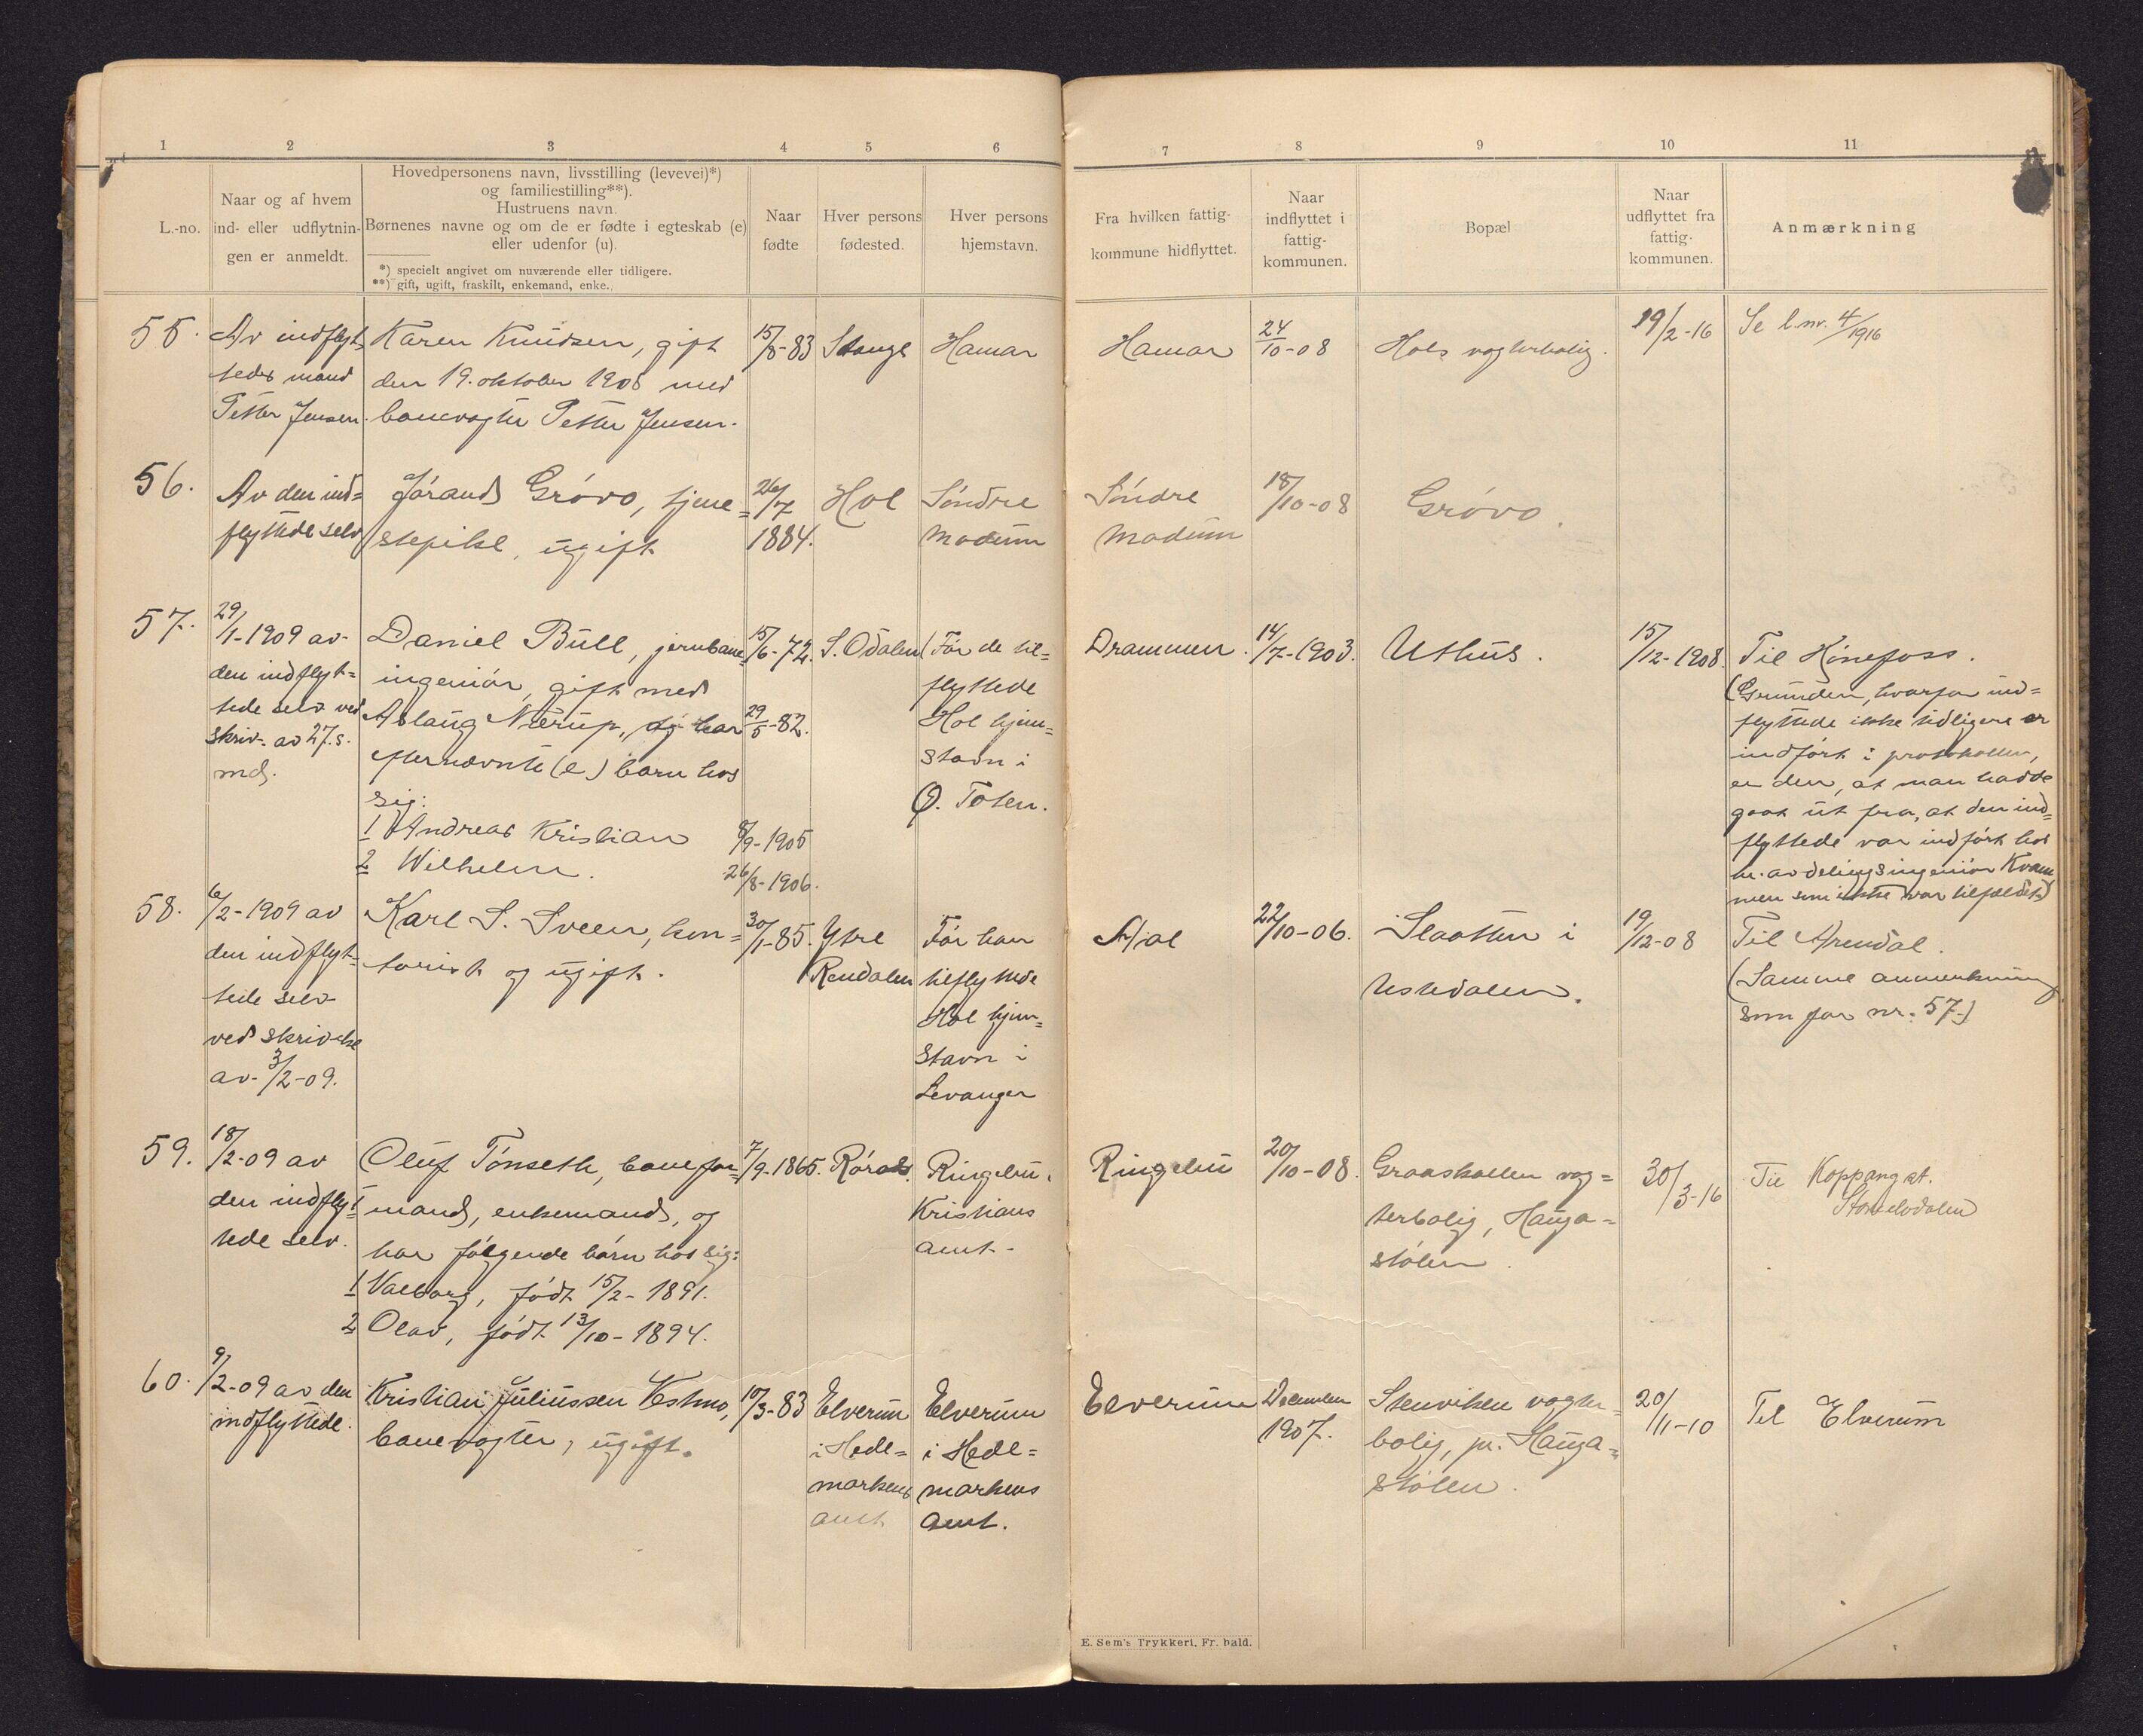 1 2 3 4 5 6 7 8 9 10 11
L.-no.
Naar og af hvem
ind- eller udflytnin-
gen er anmeldt.
Hovedpersonens navn, livsstilling (levevei)*)
og familiestilling**).
Hustruens navn.
Børnenes navne og om de er fødte i egteskab (e)
eller udenfor (u).
*) specielt angivet om nuværende eller tidligere.
**) gift, ugift, fraskilt, enkemand, enke.
Naar
fødte
Hver persons
fødested.
Hver persons
hjemstavn.
Fra hvilken fattig-
kommune hidflyttet.
Naar
indflyttet i
fattig-
kommunen.
Bopæl
Naar
udflyttet fra
fattig-
kommunen.
Anmærkning
55.
Av indflyt-
tedes mand
Petter Jensen.
Karen Knudsen, gift
den 19. oktober 1908 med
banevogter Petter Jensen.
15/8-83
Stange
Hamar
Hamar
24/10-08
Hols vogterbolig.
19/2-16
Se l.nr. 4/1916
56.
Av den ind=
flyttede selv
Jórand Gróvo, tjene=
stepike, ugift
26/7
1884.
Hol
Sóndre
Modum
Sóndre
Modum
18/10-08
Gróvo.
57.
29/1-1909 av
den indflyt=
tede selv ved
skriv. av 27. s.
md.
Daniel Bull, jernbane=
ingeniór, gift med
Aslaug Nerup, og har
efternævnte (e) barn hos
sig:
1 Andreas Kristian
2 Wilhelm.
15/6-72.
29/5-82.
8/9-1905
26/8-1906.
S. Odalen
Fór de til=
flyttede
Hol hjem=
stavn i
Ø. Toten.
Drammen.
14/7-1903.
Usthus.
15/12-1908.
Til Hónefoss.
(Grunden, hvorfor ind=
flyttede ikke tidligere er
indfórt i protokollen,
er den, at man hadde
gaat ut fra, at den ind=
flyttede var indfórt hos
hr. avdelingsingeniór Kvam
men som ikke var tilfældet)
58.
6/2-1909 av
den indflyt-
tede selv
ved skrivelse
av 3/2-09.
Karl S. Sveen, kon=
torist og ugift.
30/1-85.
Ytre
Rendalen
Fór han
tilflyttede
Hol hjem=
stavn i
Levanger
Aal
22/10-06.
Slaatten i
Ustedalen.
19/12-08
Til Arendal.
(Samme anmerkning
som for nr. 57.)
59.
18/2-09 av
den indflyt=
tede selv.
Oluf Tónseth, banefor=
mand, enkemand, og
har fólgende bórn hos sig:
1 Valborg, fódt 15/2-1891.
2 Olav, fódt 13/10-1894.
7/9-1865.
Róraas.
Ringebu,
Kristians
amt.
Ringebu
20/10-08.
Graaskallen vog=
terbolig, Hauga=
stólen.
30/3-16
Til Koppang st.
60.
9/2-09 av den
indflyttede.
Kristian Juliussen Vestmo,
banevogter, ugift.
10/3-83
Elverum
i Hede=
markens
amt
Elverum
i Hede=
markens
amt.
Elverum
Desember
1907.
Stenviken vogter=
bolig, pr. Hauga=
stólen.
20/11-10
Til Elverum
E. Sem's Trykkeri, Fr.hald.